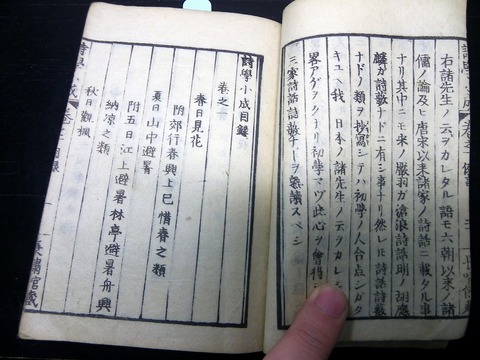 右諸先生ノ云ヲカレタル語モ六朝以来ノ諸
儒ノ論及ヒ唐宋以来諸家ノ詩話ニ載タル事
ナリ其中ニモ宋ノ嚴羽ガ滄浪詩話明ノ胡應
麟ガ詩藪ナドニ有シ事ナリ然レ𪜈詩話詩藪
ナドノ類ヲ抄寫シテハ初學ノ人合点シガタ
キユヘ我 日本ノ諸先生ノ云ヲカレシ
界アゲタリ初學マヅ此心ヲ會得シ
三家詩話詩藪ナーヲ熟讀スベシ
詩學小成目錄
卷之一
春日見花
附郊行春興上巳惜春之類
夏日山中避暑
附五日江上避暑林亭避暑舟興
納凉之類
秋日觀楓